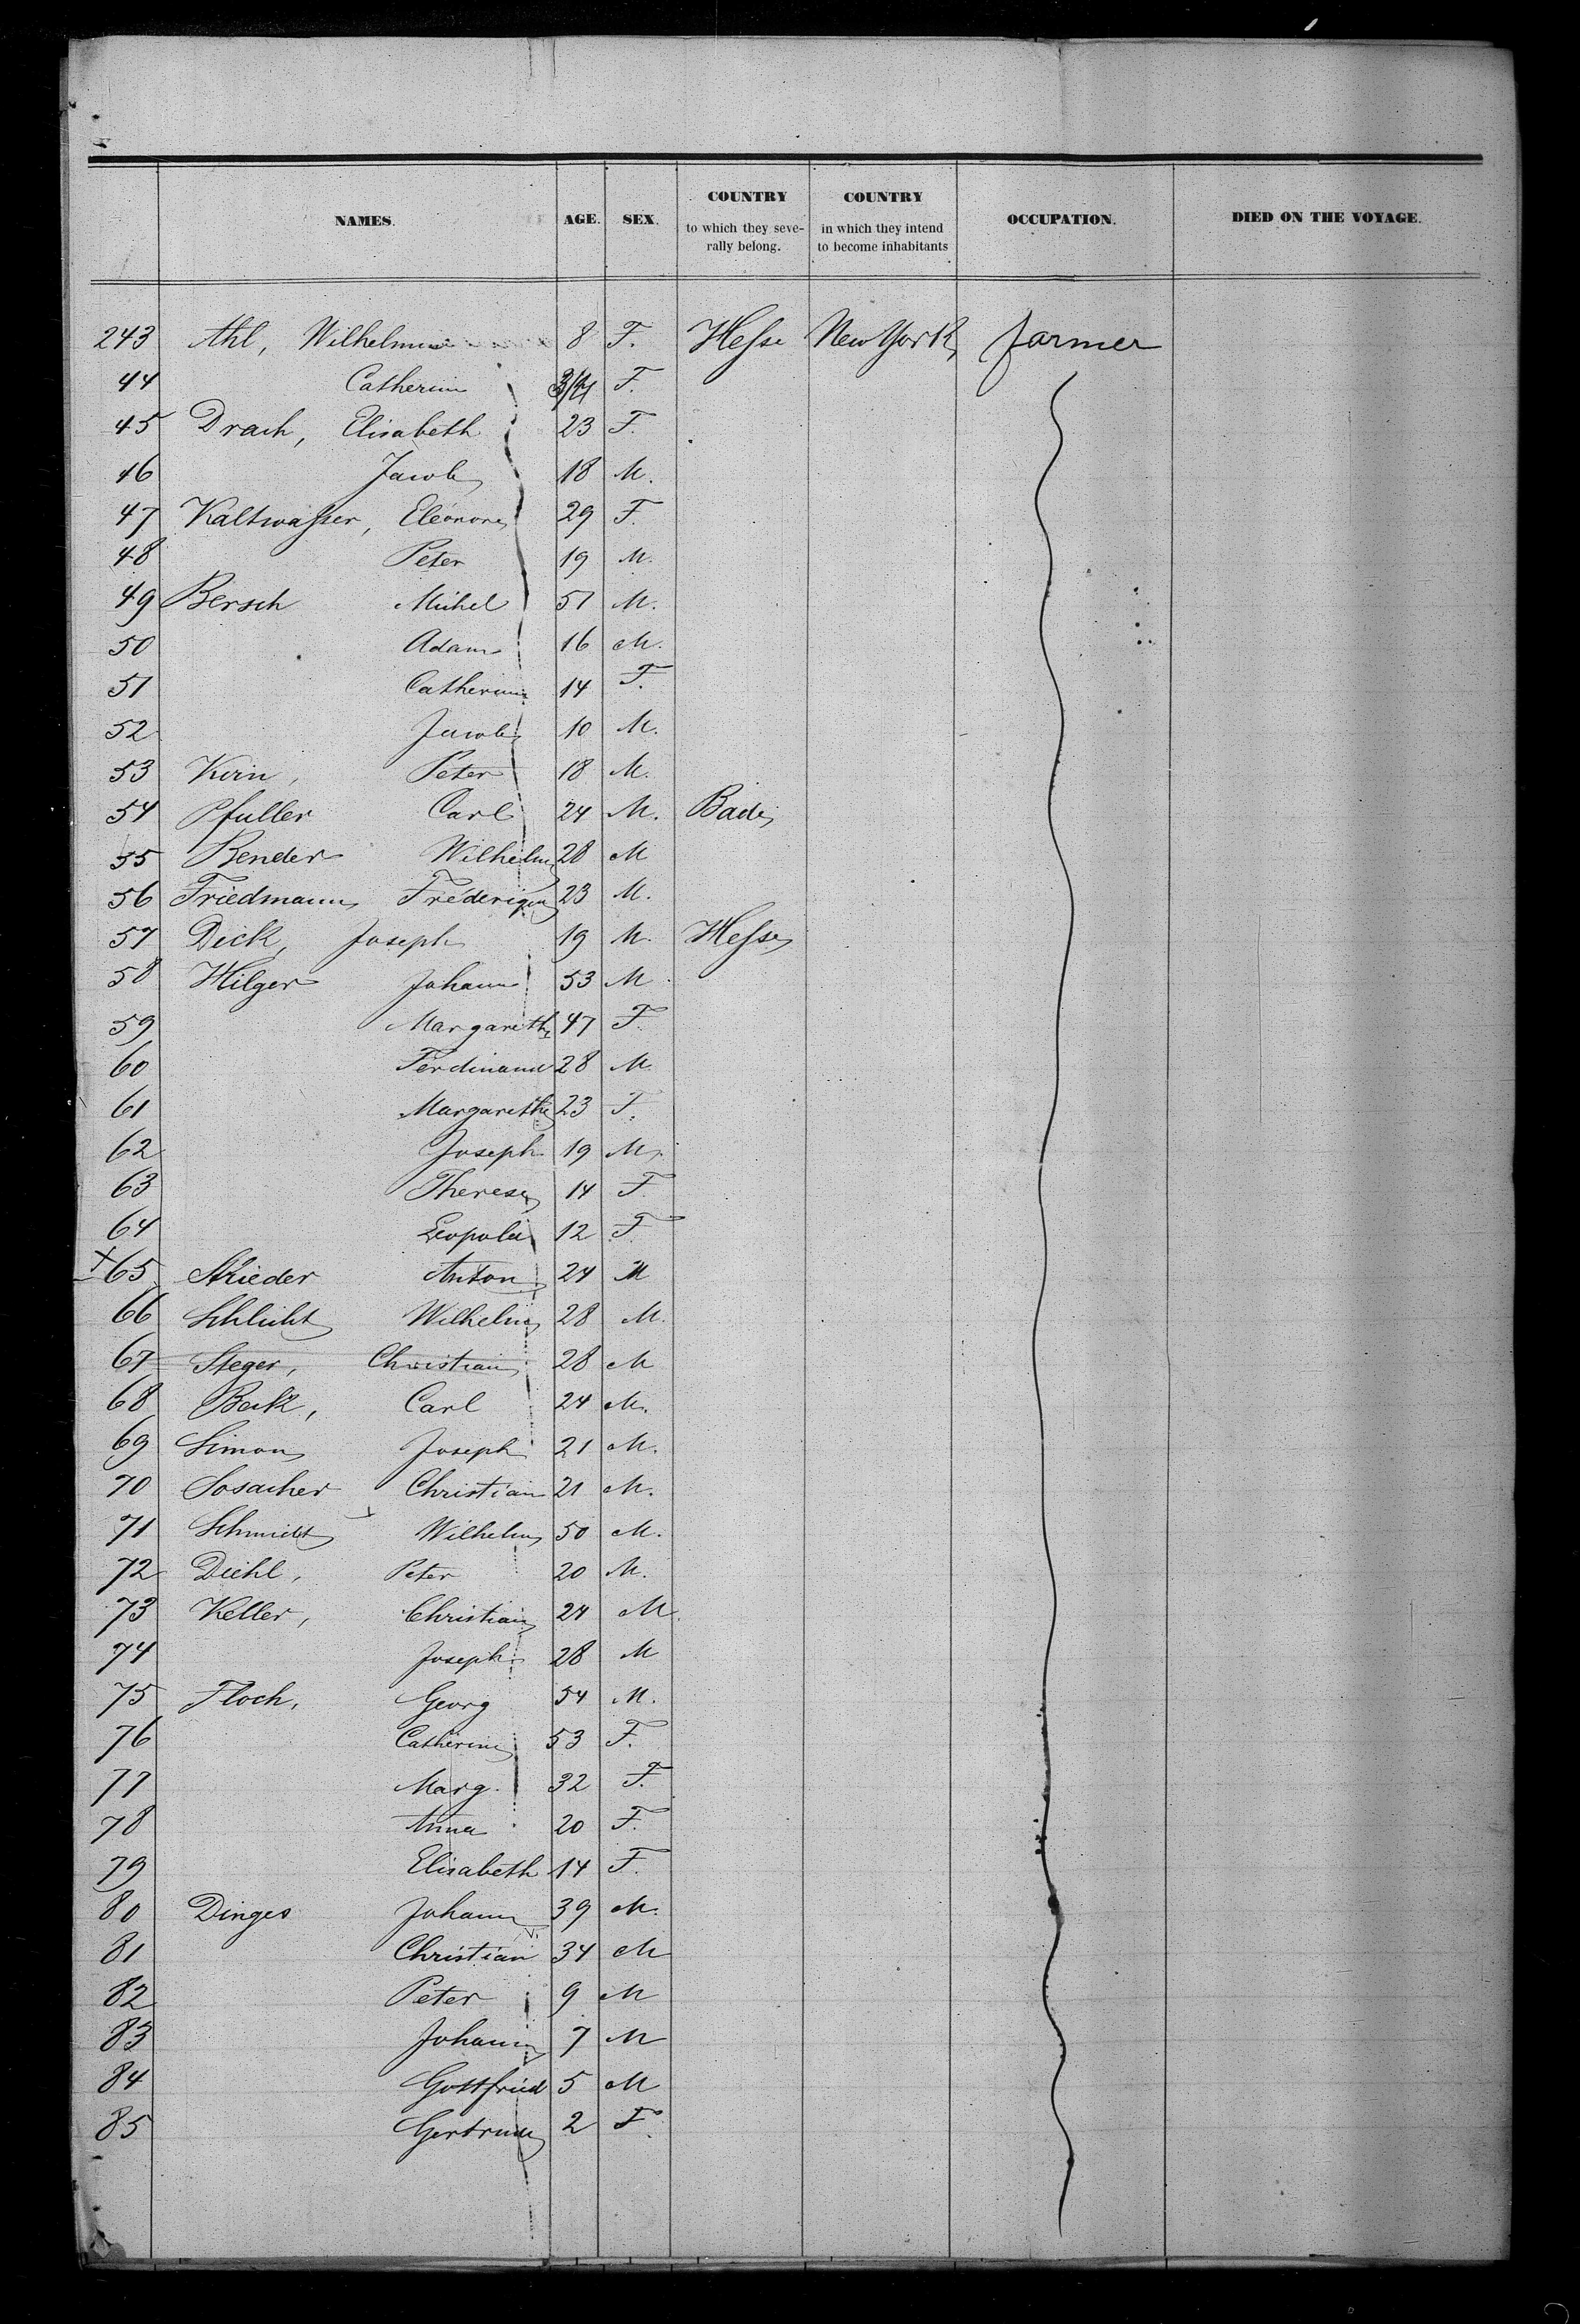 NAMES. AGE. SEX. COUNTRY to which they seve- rally belong. COUNTRY in which they intend to become inhabitants OCCUPATION. DIED ON THE VOYAGE.
243 Ahl, Wilhelmine 8 F. Hesse New York farmer
44 Catherine F.
45 Drach, Elisabeth 23 F.
46 Jacob 18 M.
47 Kaltwasser, Eleonore 29 F.
48 Peter 19 M.
49 Bersch Michel 51 M.
50 Adam 16 M.
51 Catherine 14 F.
52 Jacob 10 M.
53 Peter 18 M.
54 Pfuller Carl 24 M. Bade
55 Bender Wilhelm 28 M
56 Friedmann Frederique 23 M.
57 Dick, Joseph 19 M. Hesse
58 Hilger Johann 53 M
59 Margarethe 47 F.
60 Ferdinand 28 M
61 Margarethe 23 F.
62 Joseph 19 M.
63 Therese 14 F.
64 Leopold 12 F.
x 65 Strieder Anton 24 M
66 Schlicht Wilhelm 28 M.
67 Steger, Christian 28 M
68 Beck, Carl 24 M.
69 Simon Joseph 21 M.
70 Sosacher Christian 21 M.
71 Schmidt Wilhelm 50 M.
72 Diehl, Peter 20 M.
73 Keller, Christian 24 M.
74 Joseph 28 M
75 Floch, Georg 54 M.
76 Catherine 53 F.
77 Marg. 32 F.
78 Anna 20 F.
79 Elisabeth 14 F.
80 Dinges Johann 39 M.
81 Christian 34 M
82 Peter 9 M
83 Johann 7 M
84 Gottfried 5 M
85 Gertrude 2 F.